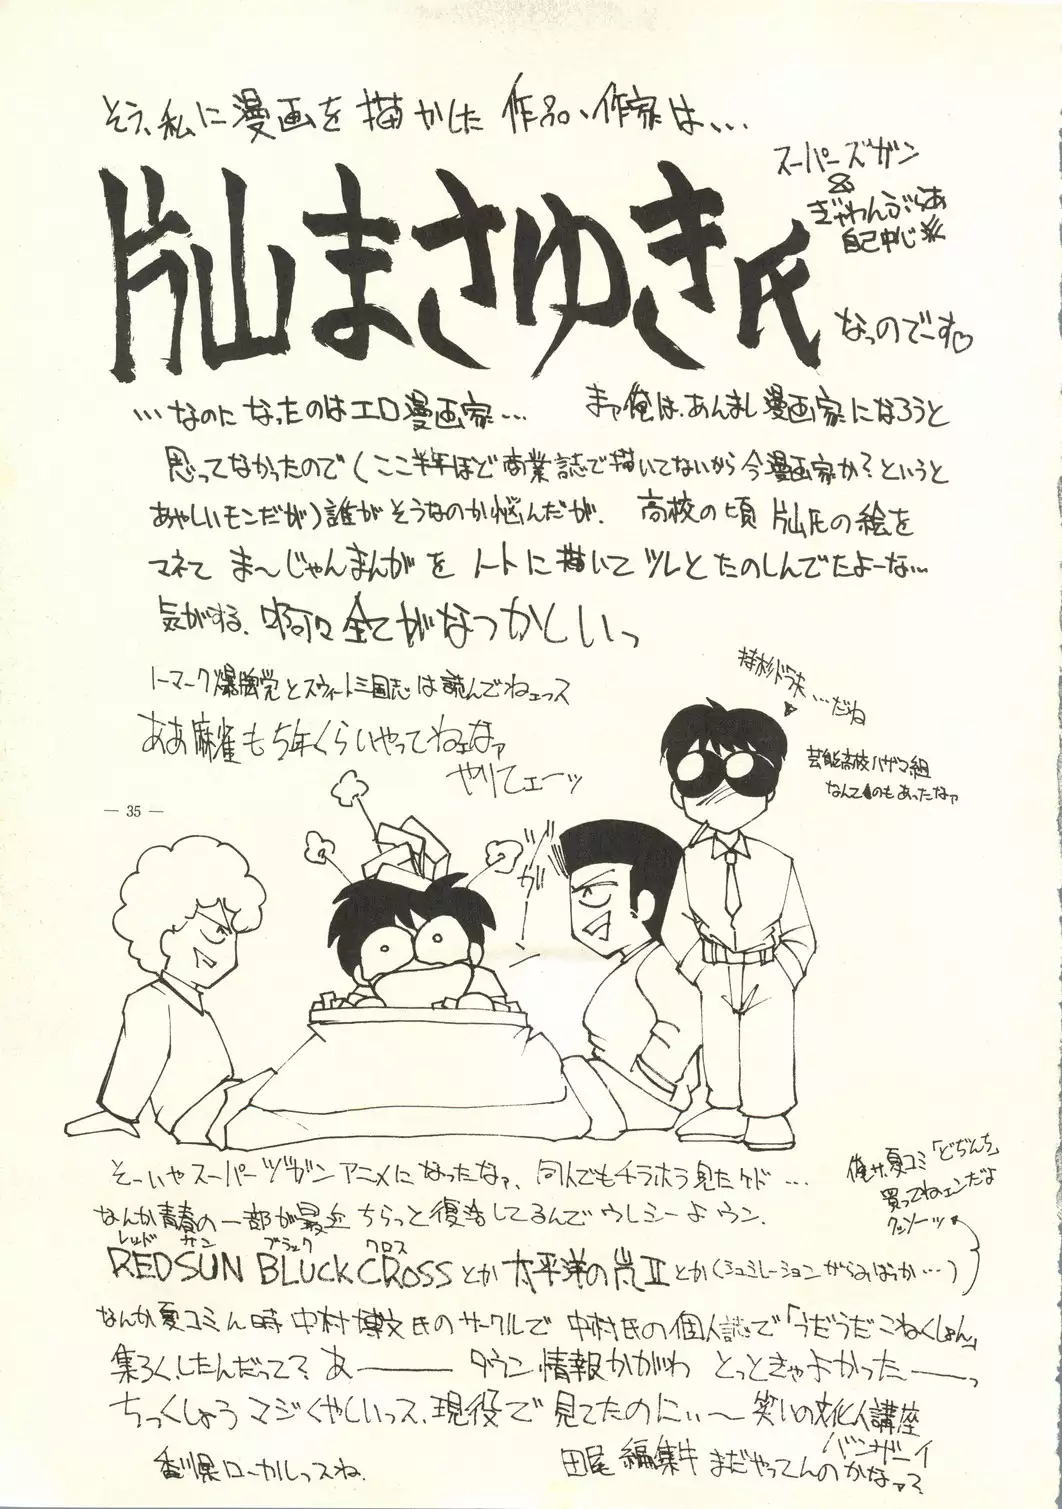 そう、私に漫画を描かした作品、作家は、…
片山まさゆき氏
スーパーズガン
&
ぎゃわんぶらあ
自己中心派
なっのでーす♡
…なのになったのはエロ漫画家… まァ俺は、あんまし漫画家になろうと
思ってなかったので(ここ半年ほど商業誌で描いてないから今漫画家か?というと
あやしいモンだが)誰がそうなのか悩んだが、高校の頃片山氏の絵を
マネてま〜じゃんまんがをノートに描いてツレとたのしんでたよーな…
気がする、啊々全てがなつかしいっ
トーマーク爆弾党とスウィート三国志は読んでねェっス
ああ麻雀も5年くらいやってねェなァ
やりてェーッ
持杉ドラ夫…だね
芸能高校ハザマ組
なんてのもあったなァ
— 35 —
ガーン
そーいやスーパーヅガンアニメになったなァ、同人でもチラホラ見たケド…
なんか青春の一部が最近ちらっと復活してるんでウレシーよウン、
俺サ、夏コミ「どぢんち」
買ってねェンだよ
クッソーッ
レッド サン ブラック クロス
REDSUN BLUCKCROSSとか太平洋の嵐Ⅱとか(シュミレーションがらみばっか…)
なんか夏コミん時中村博文氏のサークルで中村氏の個人誌で「うだうだこねくしょん」
集ろくしたんだって? あ——— タウン情報かがわ とっときゃよかった——っ
ちっくしょうマジくやしいっス、現役で見てたのにぃ〜 笑いの文化人講座
バンザーイ
香川県ローカルっスね、
田尾編集牛まだやってんのかなァ?